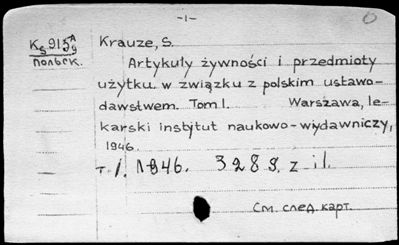 -1-
Ks 915 A/9
польск.
Krauze, S.
Artykuły żywności i przedmioty
użytku w związku z polskim ustawo-
dawstwem. Tom I. Warszawa, le-
karski instytut naukowo-wydawniczy,
1946.
т. I. 1946. 328 s. z il.
См. след. карт.